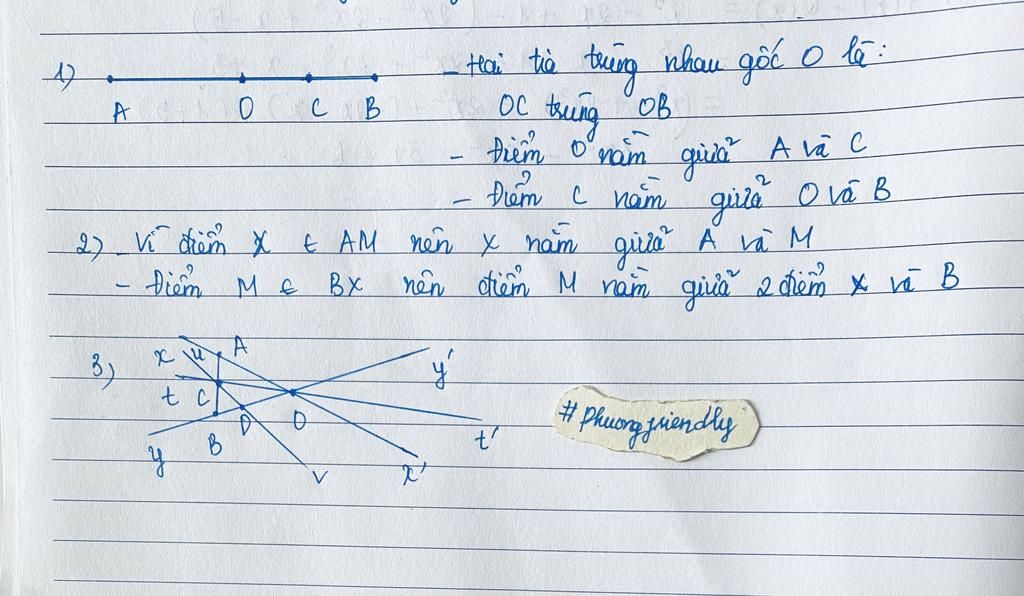 1)
A O C B
- Hai tia trùng nhau gốc O là:
OC trùng OB
- Điểm O nằm giữa A và C
- Điểm C nằm giữa O và B
2) - Vì điểm X ∈ AM nên X nằm giữa A và M
- Điểm M ∈ BX nên điểm M nằm giữa 2 điểm X và B
3)
x u A y'
t C
y B D O t'
v x'
#Phuongfriendly